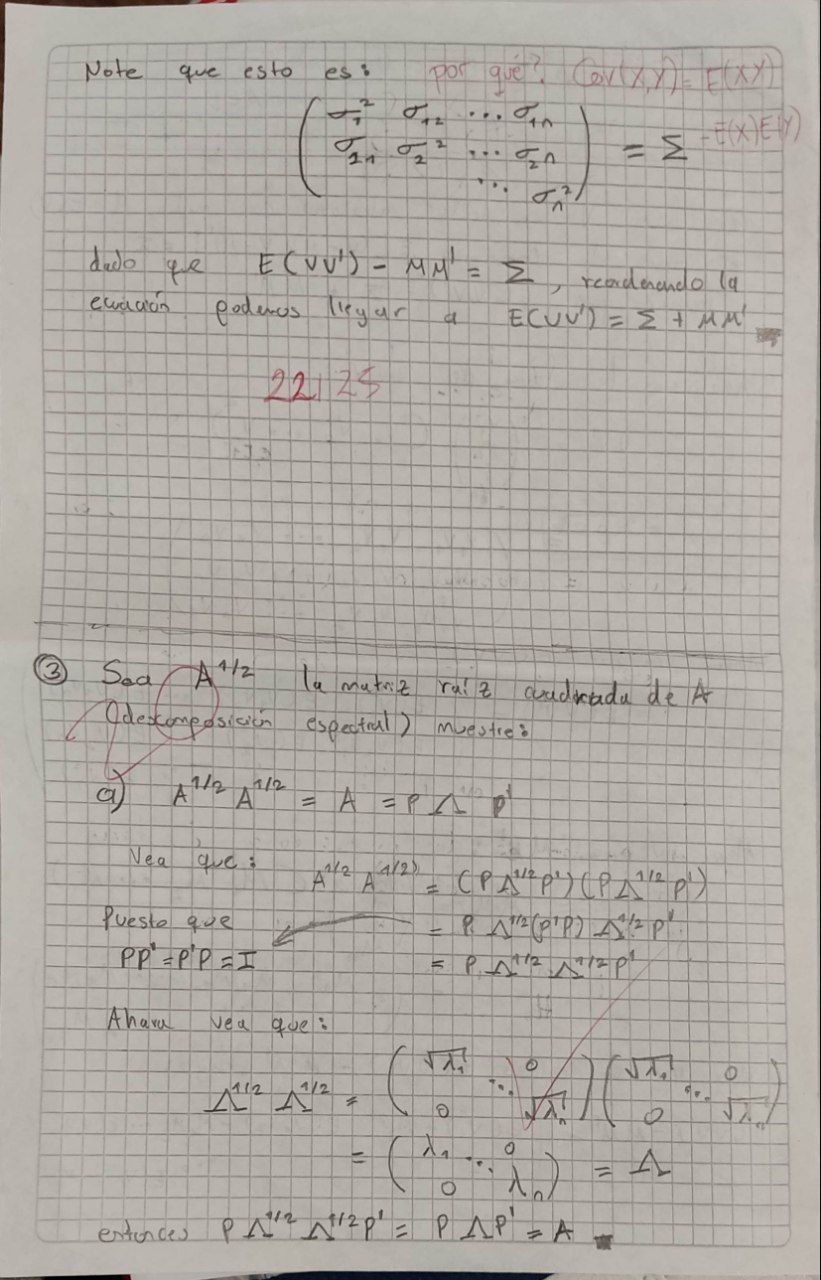 Note que esto es: por qué? Cov(X,Y) = E(XY)
-E(X)E(Y)
( σ₁² σ₁₂ ... σ₁ₙ
σ₂₁ σ₂² ... σ₂ₙ
... σₙ² ) = Σ
dado que E(VV') - MM' = Σ, reordenando la
ecuación podemos llegar a E(VV') = Σ + MM'
22/25
③ Sea A^1/2 la matriz raíz cuadrada de A
(descomposición espectral) muestre:
a) A^1/2 A^1/2 = A = P Λ P'
Vea que: A^1/2 A^1/2 = (P Λ^1/2 P')(P Λ^1/2 P')
Puesto que = P Λ^1/2 (P'P) Λ^1/2 P'
PP' = P'P = I = P Λ^1/2 Λ^1/2 P'
Ahora vea que:
Λ^1/2 Λ^1/2 = ( √λ₁ 0 ⋱ 0 √λₙ ) ( √λ₁ 0 ⋱ 0 √λₙ )
= ( λ₁ ⋱ 0 0 λₙ ) = Λ
entonces P Λ^1/2 Λ^1/2 P' = P Λ P' = A ■